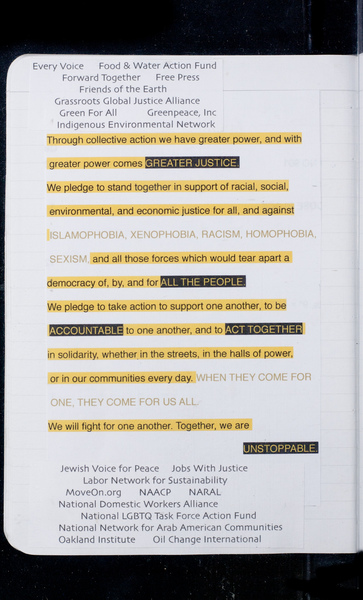 Every Voice Food & Water Action Fund
Forward Together Free Press
Friends of the Earth
Grassroots Global Justice Alliance
Green For All Greenpeace, Inc
Indigenous Environmental Network
Through collective action we have greater power, and with
greater power comes GREATER JUSTICE.
We pledge to stand together in support of racial, social,
environmental, and economic justice for all, and against
ISLAMOPHOBIA, XENOPHOBIA, RACISM, HOMOPHOBIA,
SEXISM, and all those forces which would tear apart a
democracy of, by, and for ALL THE PEOPLE.
We pledge to take action to support one another, to be
ACCOUNTABLE to one another, and to ACT TOGETHER
in solidarity, whether in the streets, in the halls of power,
or in our communities every day. WHEN THEY COME FOR
ONE, THEY COME FOR US ALL.
We will fight for one another. Together, we are
UNSTOPPABLE.
Jewish Voice for Peace Jobs With Justice
Labor Network for Sustainability
MoveOn.org NAACP NARAL
National Domestic Workers Alliance
National LGBTQ Task Force Action Fund
National Network for Arab American Communities
Oakland Institute Oil Change International